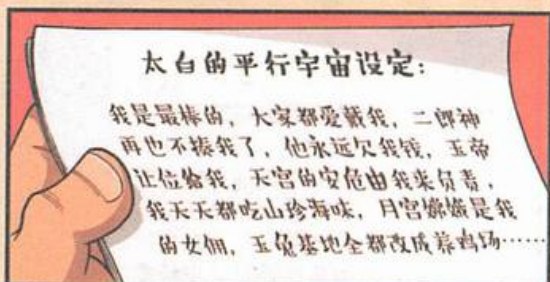 太白的平行宇宙设定：
我是最棒的，大家都爱戴我，二郎神
再也不揍我了，他永远欠我钱，玉帝
让位给我，天宫的安危由我来负责，
我天天都吃山珍海味，月宫嫦娥是我
的女佣，玉兔基地全都改成养鸡场……